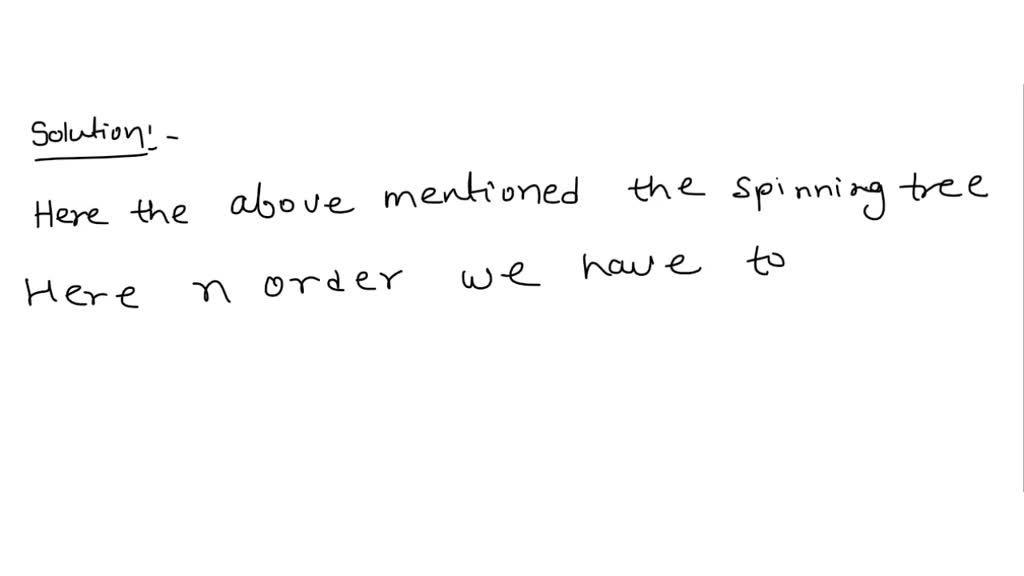 Solution:-
Here the above mentioned the spinning tree
Here n order we have to